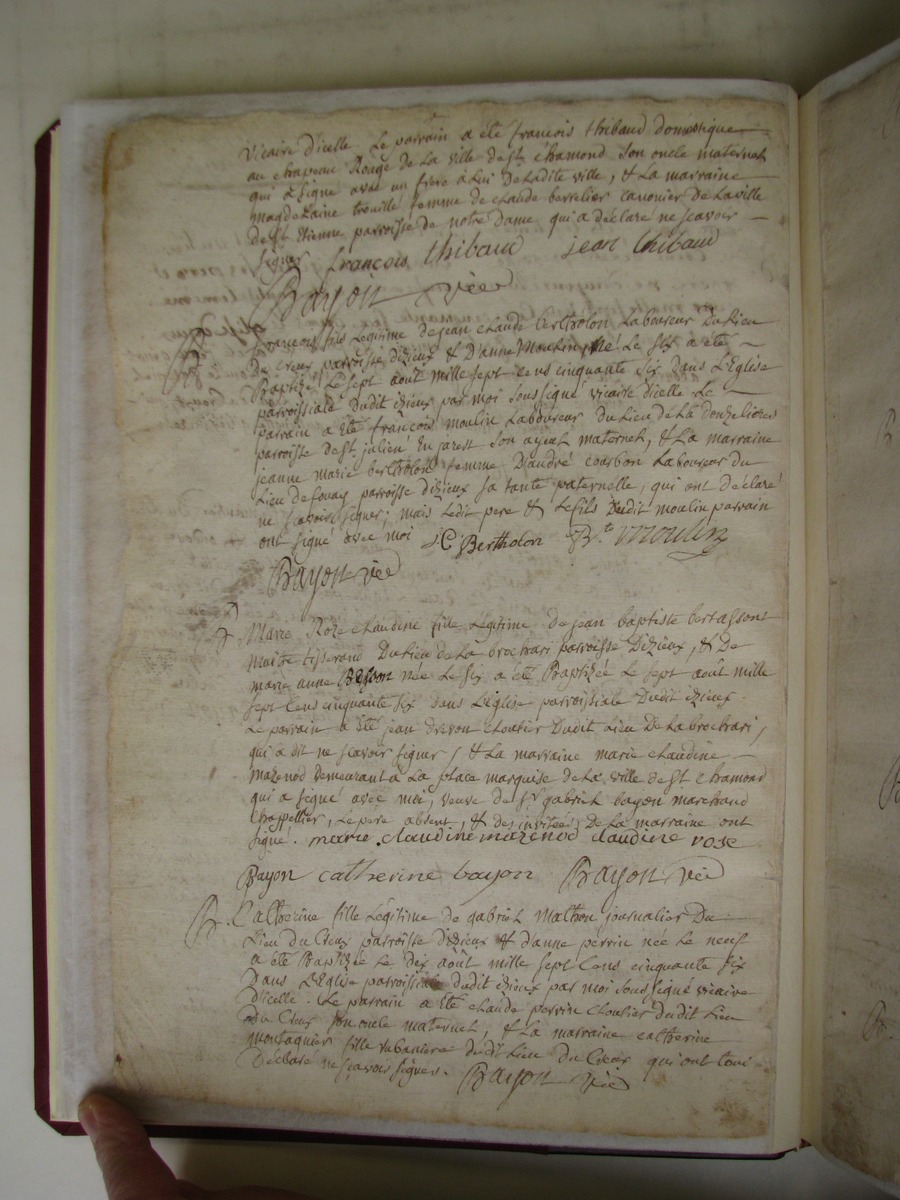 vicaire d'icelle Le parrain a été françois thibaud domestique
au chapeau Rouge de La ville de st chamond son oncle maternel
qui a signé avec un frere a Lui de Ladite ville, & La marraine
magdelaine trouillé femme de claude berrelier canonier de Laville
de st Etienne parroisse de notre dame qui a declaré ne scavoir
signer françois thibaud jean thibaud
Bayon vic
françois fils Legitime de jean claude bertholon Laboureur du Lieu
du creux parroisse d'izieux & D'anne moulin, né Le six a été
Baptizé Le sept août mille sept cens cinquante six dans L'Eglise
parroissiale dudit izieux par moi soussigné vicaire d'icelle Le
parrain a été françois moulin Laboureur du Lieu de La donzelieres
parroisse de st julien En jarest son ayeul maternel, & La marraine
jeanne marie bertholon femme D'andré courbon Laboureur du
Lieu de fouay parroisse d'izieux sa tante paternelle, qui ont déclaré
ne scavoir signer; mais Ledit pere & Le fils dudit moulin parrain
ont signé avec moi JC Bertholon Bte moulin
Bayon vic
Marie Roze claudine fille Légitime de jean baptiste bertassont
maitre tisserand Du Lieu de La brochari parroisse D'izieux, & De
marie anne née Le six a été Baptizée Le sept août mille
sept Cens cinquante six dans L'Eglise parroissiale Dudit izieux
Le parrain a été jean drevon cloutier Dudit Lieu De La brochari,
qui a dit ne scavoir signer, & La marraine marie claudine
mazenod demeurant à La place marquise de La ville de st chamond
qui a signé avec moi, veuve de sr gabriel bayon marchand
Chappellier, Le pere absent, & des invitées De La marraine ont
signé. marie claudine mazenod claudine rose
Bayon catherine bayon Bayon vic
Catherine fille Légitime de gabriel Mathon journalier Du
Lieu du Creux parroisse d'izieux & d'anne perrin née Le neuf
a été Baptizée Le dix août mille sept Cens cinquante six
Dans L'Eglise parroissiale dudit izieux par moi soussigné vicaire
D'icelle. Le parrain a Eté claude perrin cloutier dudit Lieu
Du Creux son oncle maternel, & La marraine catherine
montagnier fille rubaniere dudit Lieu Du Creux qui ont tous
Déclaré ne scavoir signer. Bayon vic